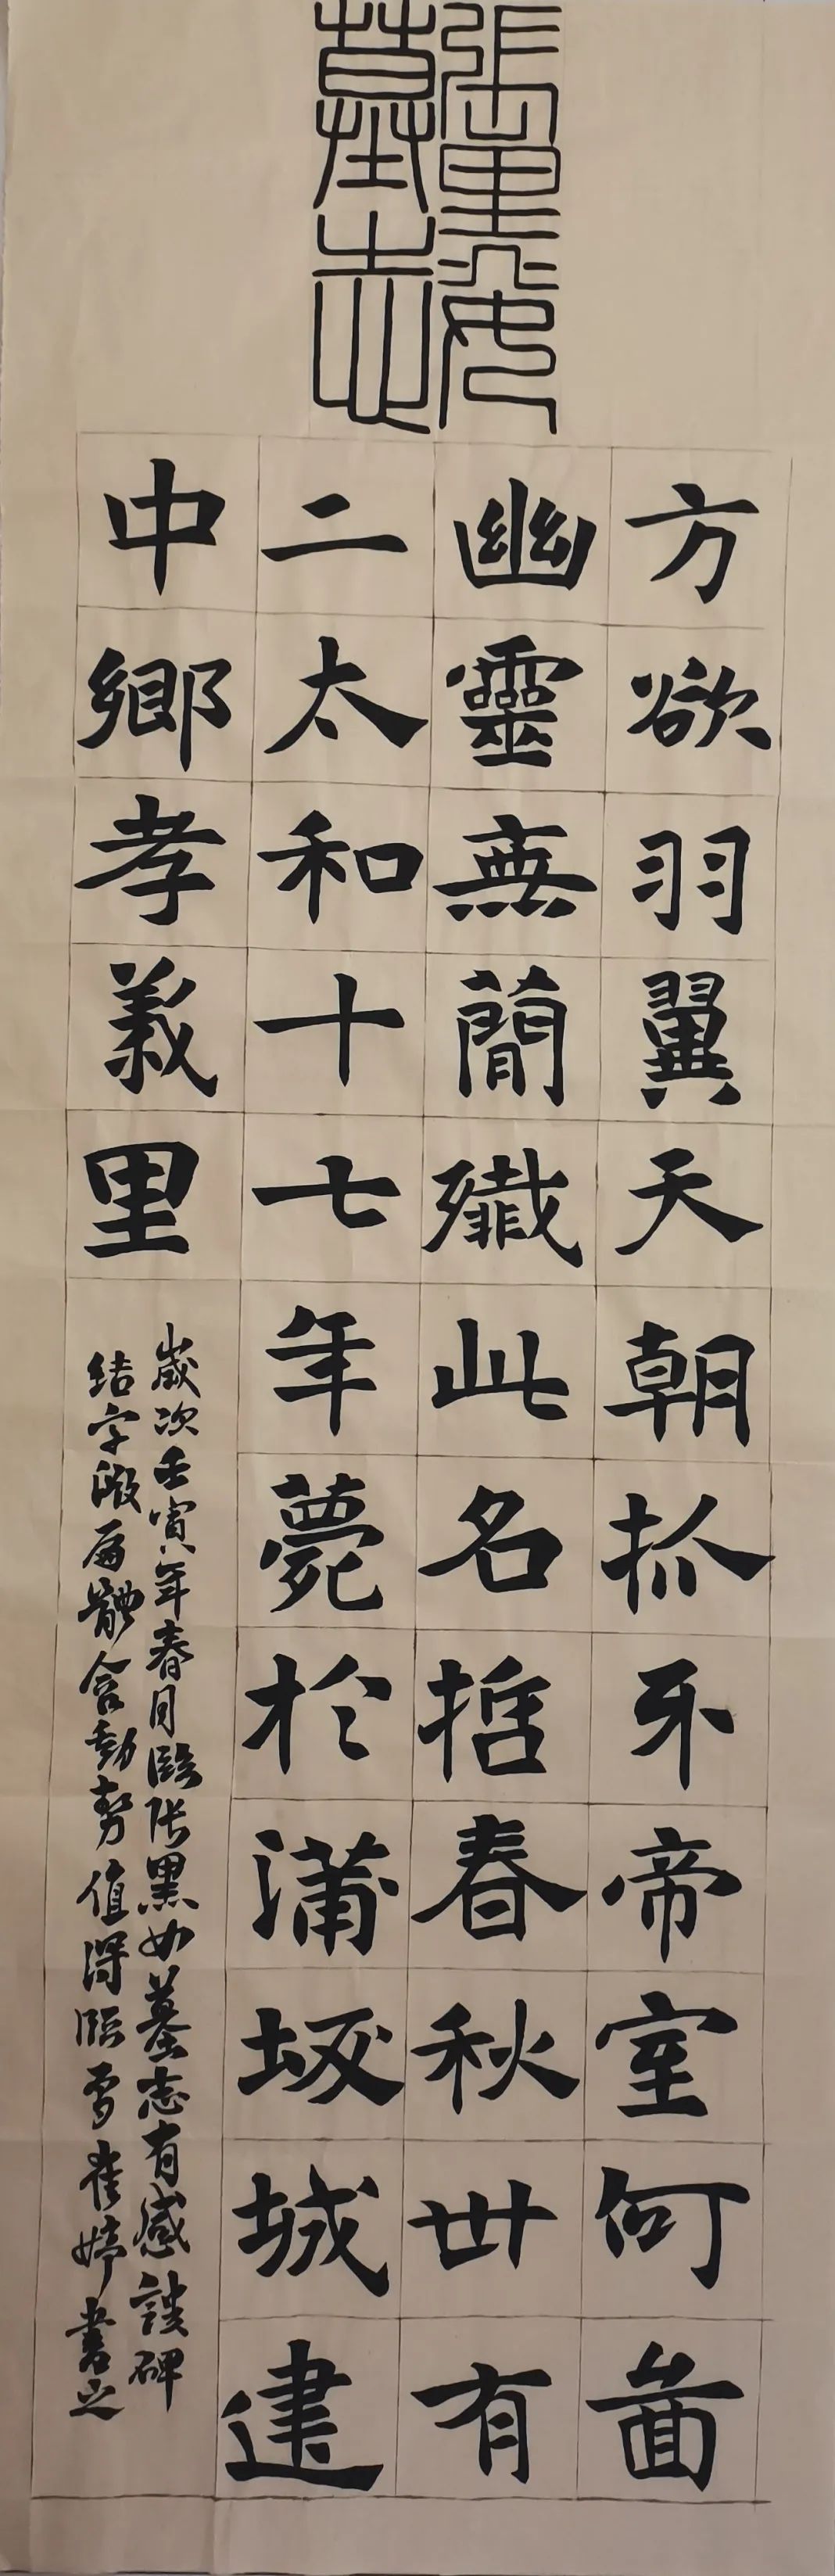 張黑女
墓志
方欲羽翼天朝抓牙帝室何啚
幽靈無簡殲此名哲春秋卅有
二太和十七年薨於蒲坂城建
中鄉孝義里
歲次壬寅年春月臨张黑女墓志有感該碑
结字微扁體含動勢值得臨習崔婷書之